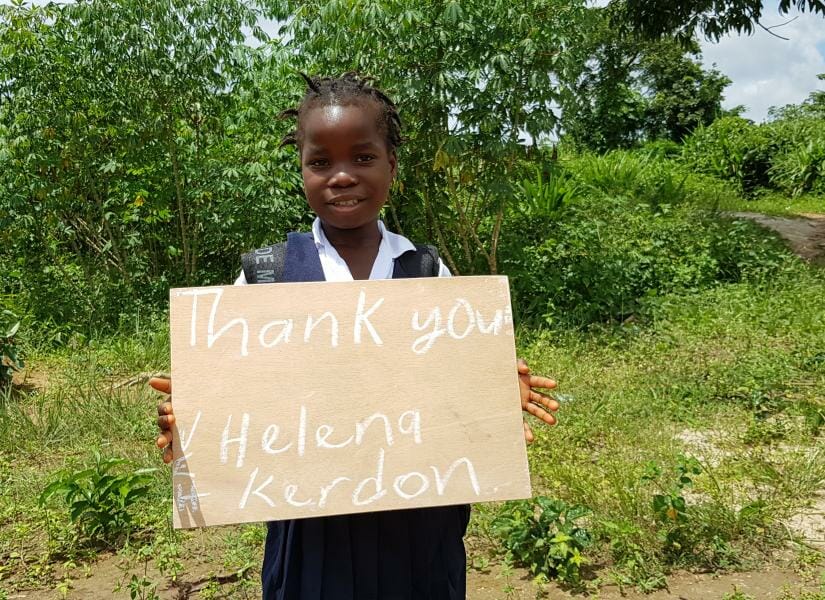 Thank you
Helena
Kerdon.
DE M